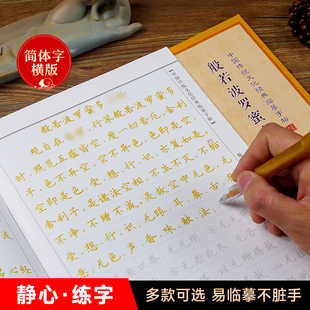 简体字
横版
中国传统文化经典临摹字帖
般若波罗蜜
般若波罗蜜多
观自在 ，行深般若波罗蜜多
时，照见五蕴皆空，度一切苦厄。舍利
子，色不异空，空不异色，色即是空，
空即是色。受、想、行、识，亦复如是。
舍利子，是诸法空相，不生不灭，不垢
不净，不增不减，是故空中无色，无
受、想、行、识，无眼、耳、鼻、舌、
意，无色、声、香、味、触、法，
静心·练字
多款可选 易临摹不脏手